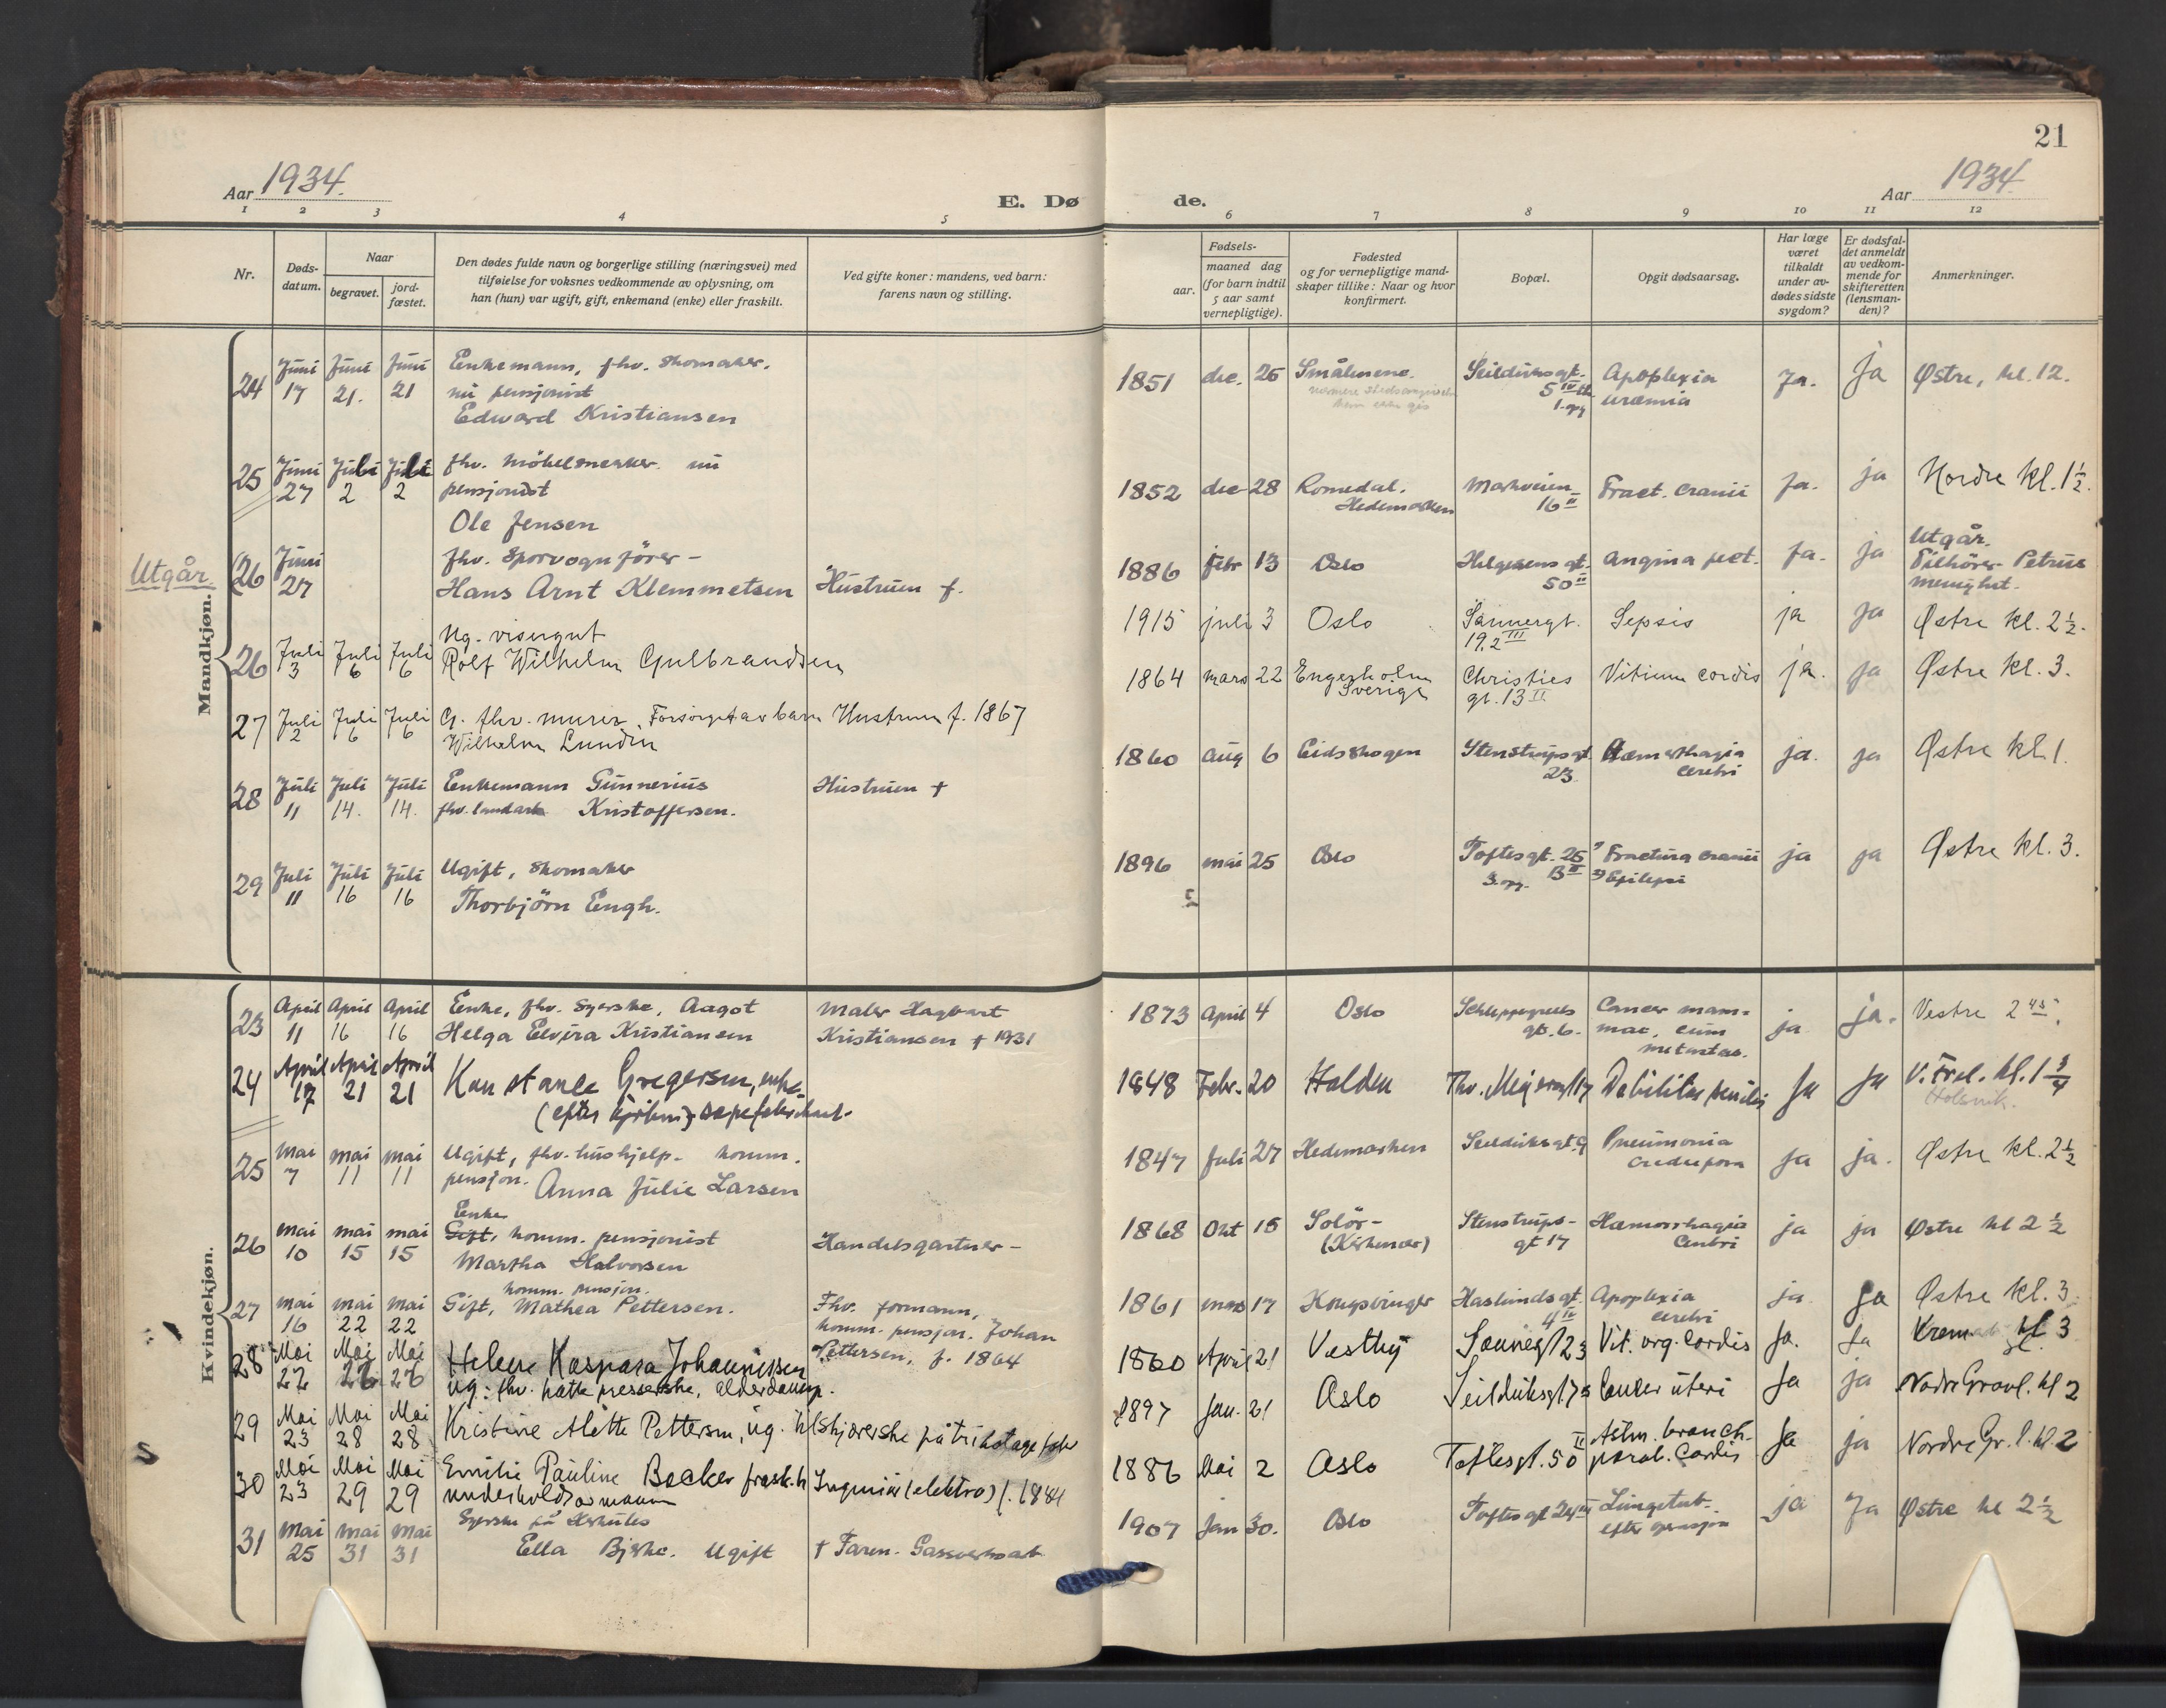 21
Aar 1934.
E. Dø
de.
Aar 1934
1 2 3 4 5 6 7 8 9 10 11 12
Nr.
Døds-
datum.
Naar
begravet.
jord-
fæstet.
Den dødes fulde navn og borgerlige stilling (næringsvei) med
tilføielse for voksnes vedkommende av oplysning, om
han (hun) var ugift, gift, enkemand (enke) eller fraskilt.
Ved gifte koner: mandens, ved barn:
farens navn og stilling.
Fødsels-
aar.
maaned dag
(for barn indtil
5 aar samt
vernepligtige).
Fødested
og for vernepligtige mand-
skaper tillike: Naar og hvor
konfirmert.
Bopæl.
Opgit dødsaarsag.
Har læge
været
tilkaldt
under av-
dødes sidste
sygdom?
Er dødsfal-
det anmeldt
av vedkom-
mende for
skifteretten
(lensman-
den)?
Anmerkninger.
Mandkjøn.
24 Juni 17 Juni 21. Juni 21 Enkemann, fhv. skomaker.
nu pensjonist
Edward Kristiansen
1851 dec. 26 Smålenene. Seilduksgt. 5 IV 1. opg Apoplexia uræmia Ja. Ja Østre, kl. 12.
25 Juni 27 Juli 2 Juli 2 fhv. möbelsnekker nu
pensjonist
Ole Jensen
1852 dec 28 Romedal. Hedemarken Markveien 16 II Fract. cranii Ja. ja Nordre kl. 1 1/2.
Utgår.
26 Juni 27 fhv. Sporvognförer -
Hans Arnt Klemmetsen Hustruen f.
1886 febr 13 Oslo Helgesens gt. 50 II Angina pect. Ja. ja Utgår. Tilhörer Petrus menighet.
26 Juli 3 Juli 6 Juli 6 Ug. visergut
Rolf Wilhelm Gulbrandsen
1915 juli 3 Oslo Sannergt. 19.2 III Sepsis ja ja Østre kl. 2 1/2.
27 Juli 2 Juli 6 Juli 6 G. fhv. murer, Forsörget av barn Hustruen f. 1867
Wilhelm Lundin
1864 mars 22 Engelholm Sverige Christies gt. 13 II Vitium cordis ja. ja Østre kl. 3.
28 Juli 11 Juli 14. Juli 14. Enkemann Gunnerius Hustruen +
fhv. landarb. Kristoffersen.
1860 aug 6 Eidskogen Stenstrupsgt 23 Hæmorrhagia cerebri ja. ja Østre kl. 1.
29 Juli 11 Juli 16 Juli 16 Ugift, skomaker
Thorbjörn Engh.
1896 mai 25 Oslo Toftesgt. 26 B II 3. opg. Fractura cranii Epilepsi ja ja Østre kl. 3.
Kvindekjøn.
23 April 11 April 16 April 16 Enke, fhv. syerske, Aagot Maler Hagbart
Helga Elvira Kristiansen Kristiansen + 1931
1873 April 4 Oslo Schleppegrels gt. 6. Cancer mammae, cum metastas. ja ja. Vestre 2 45.
24 April 17 April 21 April 21 Konstanse Gregersen, enke
1848 Febr. 20 Halden Thv. Meyersgt 17 Debilitas senilis Ja Ja V. Frel. kl. 1 3/4
25 Mai 7 mai 11 mai 11 Ugift, fhv. hushjelp. komm.
pensjon. Anna Julie Larsen
1847 Juli 27 Hedemarken Seilduksgt. 9 Pneumonia ja ja. Østre kl. 2 1/2
26 Mai 10 mai 15 mai 15 Enke
Gift, komm. pensjonist Handelsgartner -
Martha Halvorsen
1868 Okt 15 Solör- (Kirkenær) Stenstrups- gt 17 Hæmorrhagia cerebri ja ja Østre kl 2 1/2
27 mai 16 mai 22 mai 22 komm. pensjon.
Gift, Mathea Pettersen. Fhv. formann,
komm. pensjon. Johan
Pettersen, f. 1864
1861 mars 17 Kongsvinger Haslunds gt 4 IV Apoplexia cerebri ja ja Østre kl. 3
28 Mai 22 Mai 26 Mai 26 Helene Kaspara Johannessen
ug: fhv. hattepresserske, alderdomsp.
1860 April 21 Vestby Sannergt 23 Vit. org. Cordis Ja. Ja Kremat kl. 3
29 Mai 23 Mai 28 Mai 28 Kristine Alette Pettersen, ug. tilskjærerske på trikotagefabr
1897 Jan. 21 Oslo Seilduksgt Cancer uteri Ja ja Nordre Gravl. kl 2
30 Mai 23 Mai 29 Mai 29 Emilie Pauline Becker frask. h Ingeniör (elektro) f. 1884
underholdt av mann
1886 Mai 2 Oslo Toftesgt. 50 II Astm. bronch. paral. Cordis Ja ja Nordre Gr. l. kl. 2
31 Mai 25 mai 31 mai 31 Syerske på Herkules
Ella Bjerke. Ugift + Faren. Gassverksarb
1907 jan 30. Oslo Toftes gt 24 III Lungetub. efter operasjon ja Ja Østre kl 2 1/2